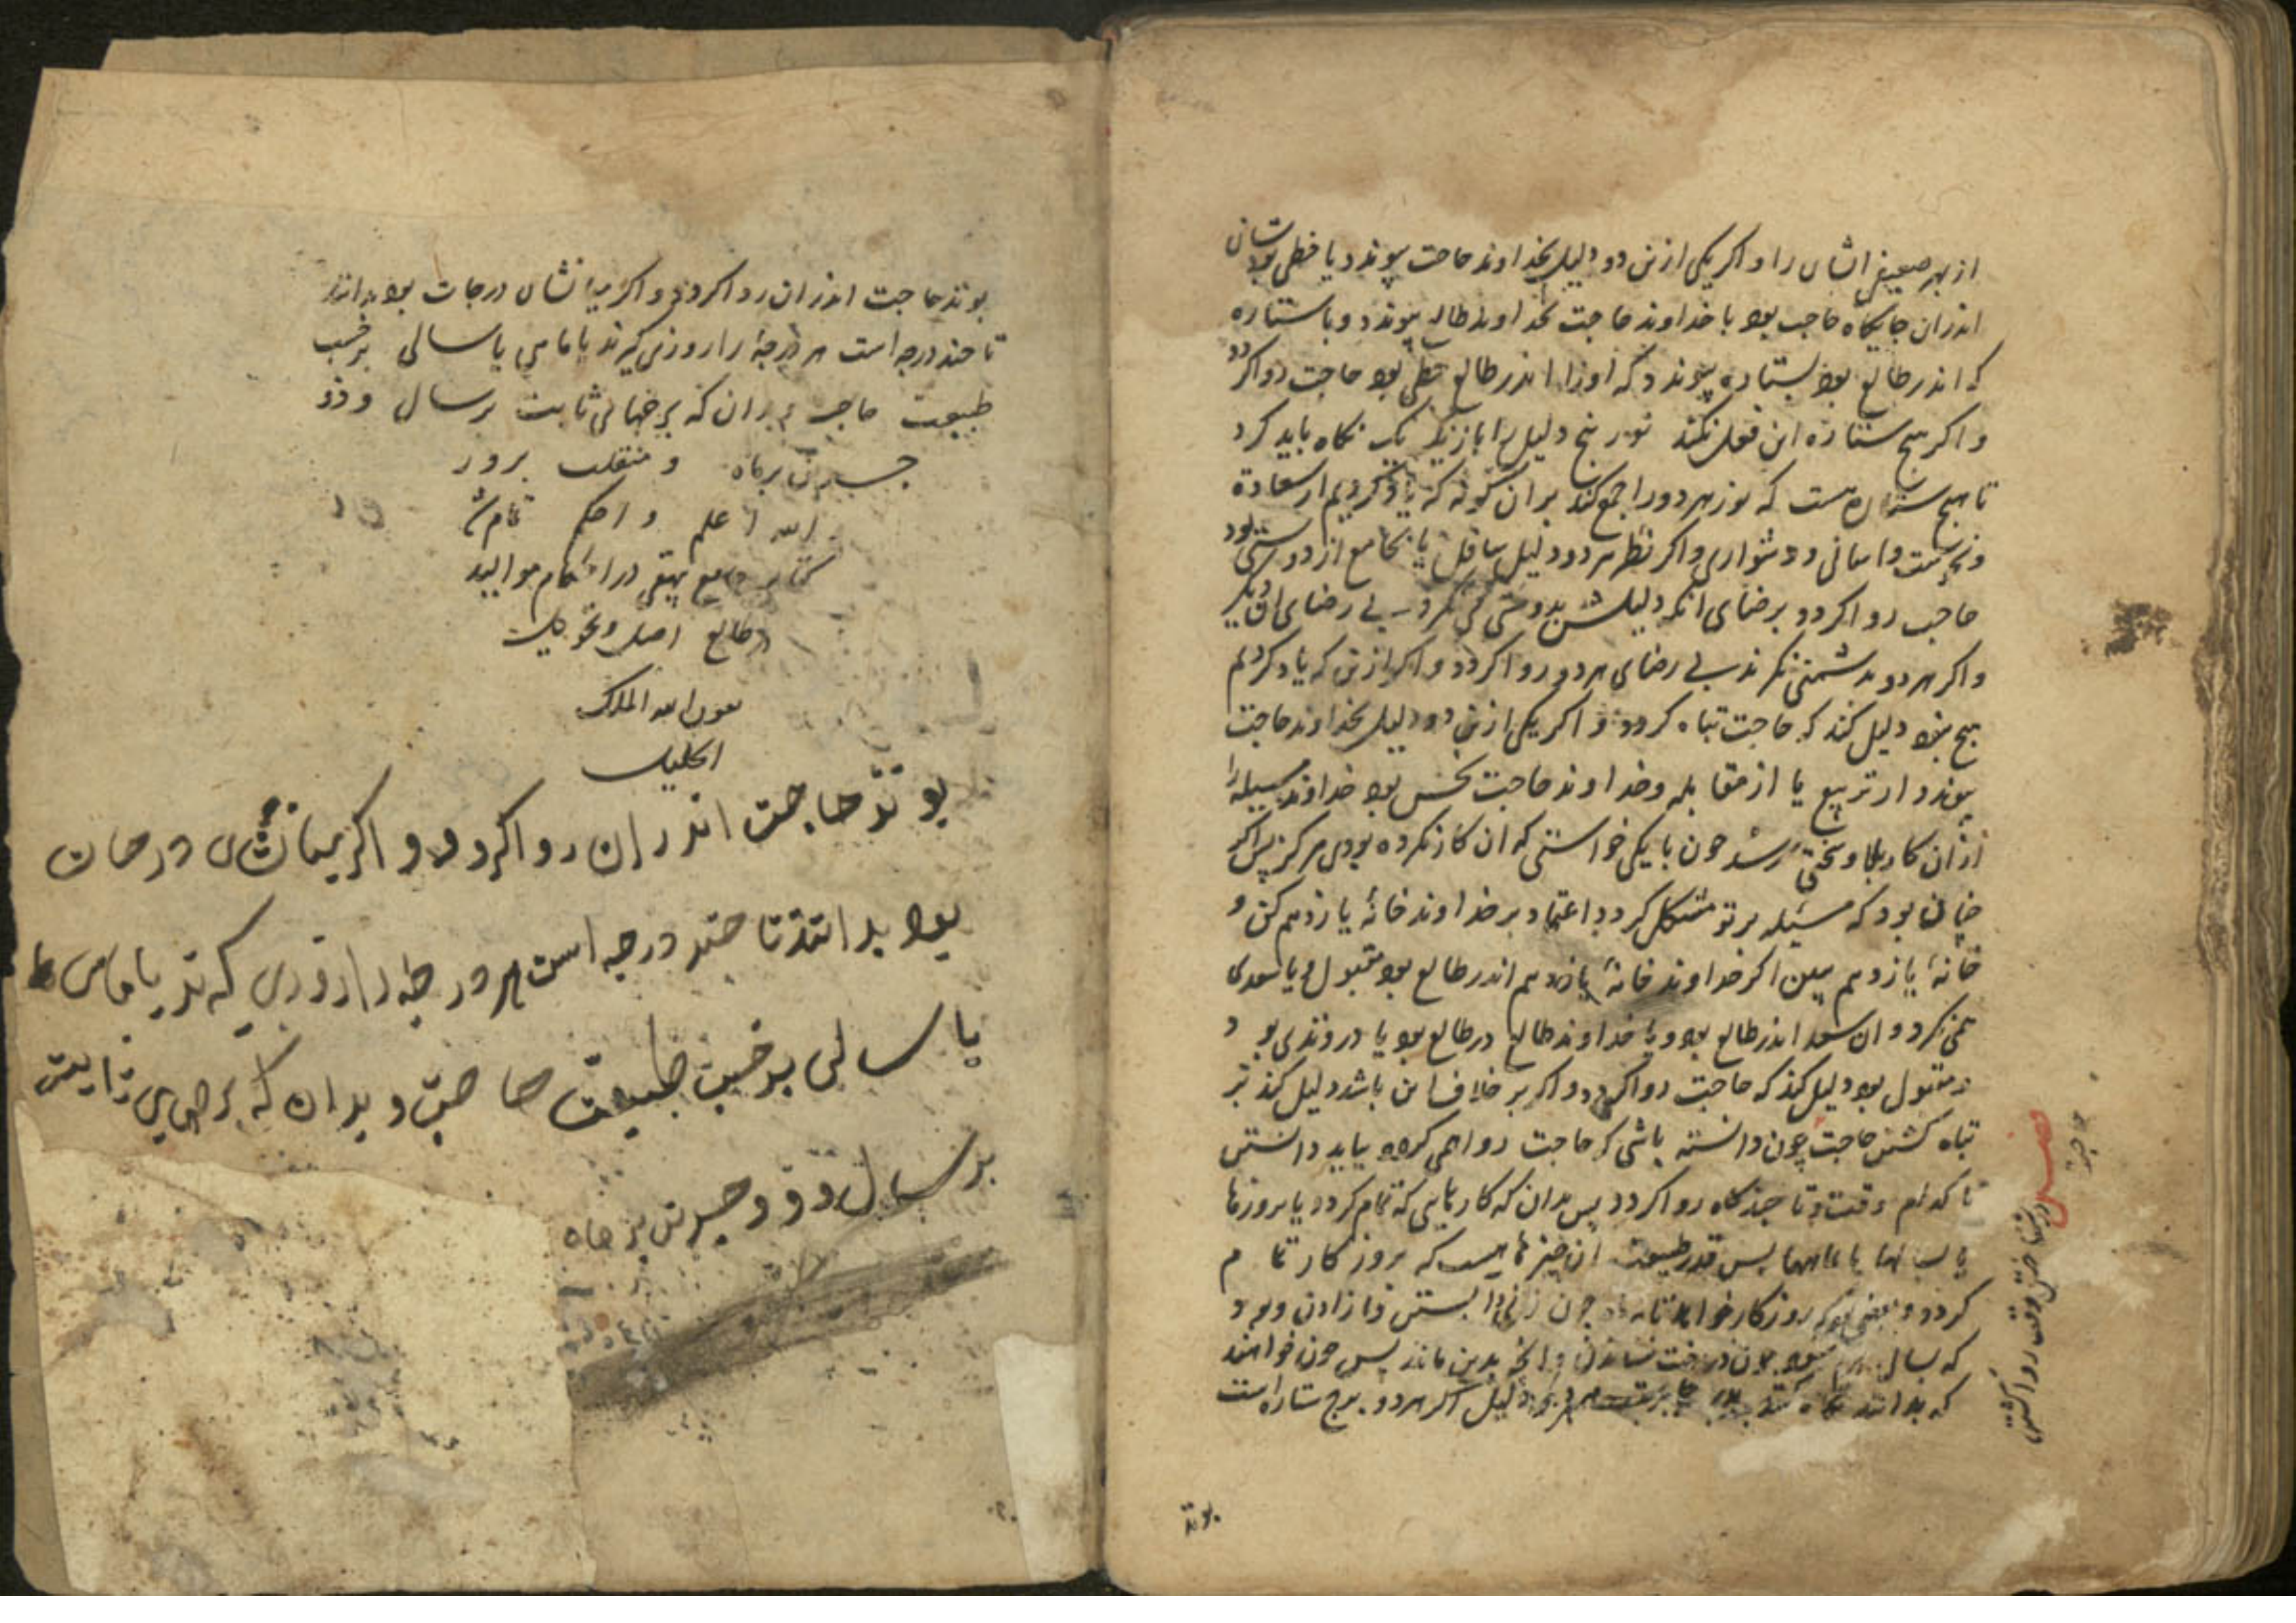 از بهر ضعیفی ایشان را و اکر یکی ازین دو دلیل بخداوند حاجت پیوندد یا خطی بودشان
اندران جایکاه حاجت بود یا خداوند حاجت بخداوند طالع پیوندد و یا ستاره
که اندر طالع بود بستاره پیوندد که اورا اندر طالع خطی بود حاجت روا کردد
و اکر هیچ ستاره این فعل نکند نور بنج دلیل را با زیک یک نکاه باید کرد
تا هیچ ستاره هست که نور هر دو را جمع کند بران کونه که یاد کردیم از سعادة
و نحوست و اسانی و دشواری و اکر نظر هر دو دلیل یا جامع از دوستی بود
حاجت روا کردد برضای انکه دلیلش بدوستی می نکرد بی رضای ان دیکر
و اکر هر دو بدشمنی نکرند بی رضای هر دو روا کردد و اکر ازین که یاد کردیم
هیچ نبود دلیل کند که حاجت تباه کردد و اکر یکی ازین دو دلیل بخداوند حاجت
پیوندد از تربیع یا از مقابله و خداوند حاجت نحس بود خداوند مسیله را
ازان کار بلا و سختی رسد جون بایکی خواستی که ان کار نکرده بودی هرکز پس اکر
جنان بود که مسیله بر تو مشکل کردد اعتماد بر خداوند خانهٔ یازدهم کن و
خانهٔ یازدهم ببین اکر خداوند خانهٔ یازدهم اندر طالع بود مقبول و یا سعدی
همی نکرد و ان سعد اندر طالع بود و یا خداوند طالع در طالع بود یا در وتدی بود
و مقبول بود دلیل کند که حاجت روا کردد و اکر بر خلاف این باشد دلیل کند بر
تباه کشتن حاجت چون دانسته باشی که حاجت روا همی کردد بباید دانستن
تا کدام وقت و تا جند کاه روا کردد پس بدان که کارهایی که تمام کردد یا بروزها
یا بماهها یا بسالها پس قدر طبیعت ان چیزها هست که بروز کار تمام
کردد و بعضی بود که روزکار خواهد تا جون زنی را بستن و زادن و بود
که بسال بود جون درخت نشاندن و انچه بدین ماند پس جون خواهند
که بدانند نکاه کنند دلیل اکر هر دو ببرج ستاره است
بوند
فصل
در شناختن وقت روا کشتن
حاجت
بوند حاجت اندران روا کردد و اکر میانشان درجات بود بدانند
تا جند درجه است هر درجهٔ را روزی کیرند یا ماهی یا سالی برحسب
طبیعت حاجت و بدان که برجهای ثابت بر سال و ذو
جسدین بر ماه و منقلب بر روز
الله اعلم و احکم تمام شد
کتاب جامع بیهقی در احکام موالید
در طالع اصل و تحویل
بعون الله الملک
الجلیل
بوند حاجت اندران روا کردد و اکر میانشان درجات
بود بدانند تا جند درجه است هر درجه را روزی که ند یا ماهی
یا سالی بر حسب طبیعت حاجت و بدان که برجهای ثابت
بر سال و ذو جسدین بر ماه